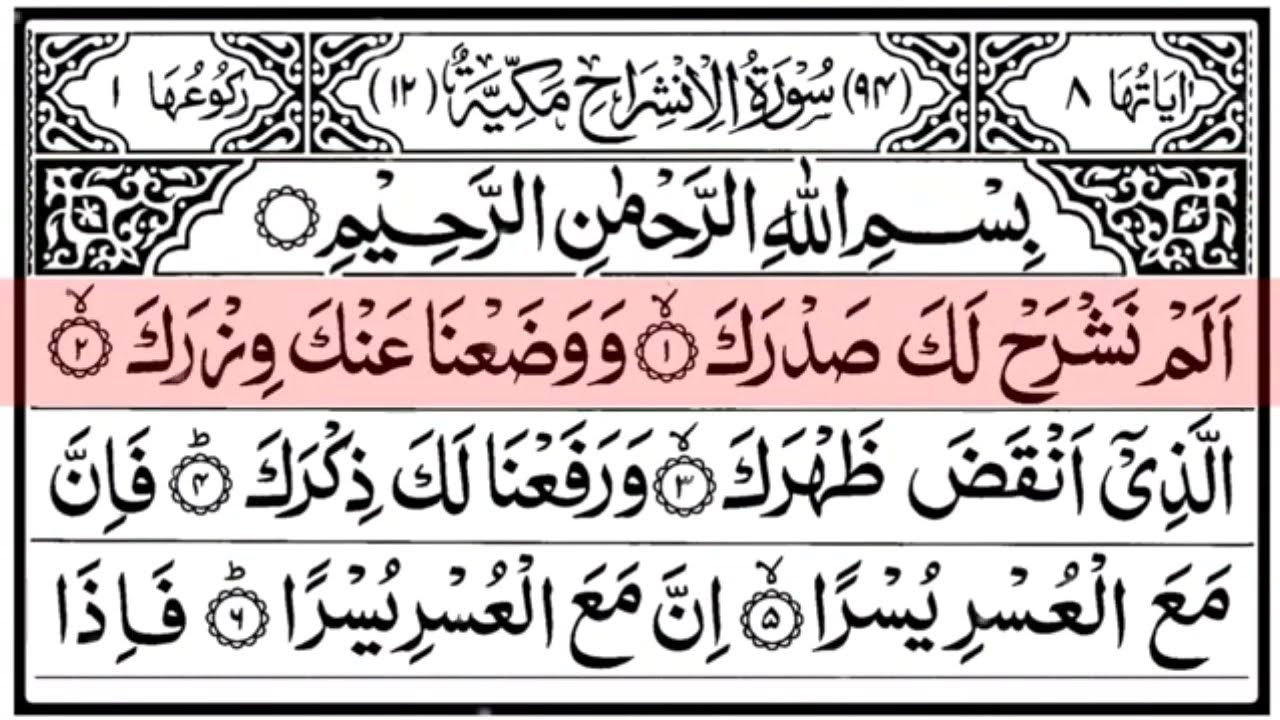 اٰيَاتُهَا ٨ (٩٤) سُوْرَةُ الْاِنْشِرَاحِ مَكِّيَّةٌ (١٢) رُكُوْعُهَا ١
بِسْمِ اللّٰهِ الرَّحْمٰنِ الرَّحِيْمِ
اَلَمْ نَشْرَحْ لَكَ صَدْرَكَ ۙ﴿١﴾ وَوَضَعْنَا عَنْكَ وِزْرَكَ ۙ﴿٢﴾
الَّذِيْٓ اَنْقَضَ ظَهْرَكَ ۙ﴿٣﴾ وَرَفَعْنَا لَكَ ذِكْرَكَ ؕ﴿۴﴾ فَاِنَّ
مَعَ الْعُسْرِ يُسْرًا ۙ﴿۵﴾ اِنَّ مَعَ الْعُسْرِ يُسْرًا ؕ﴿۶﴾ فَاِذَا